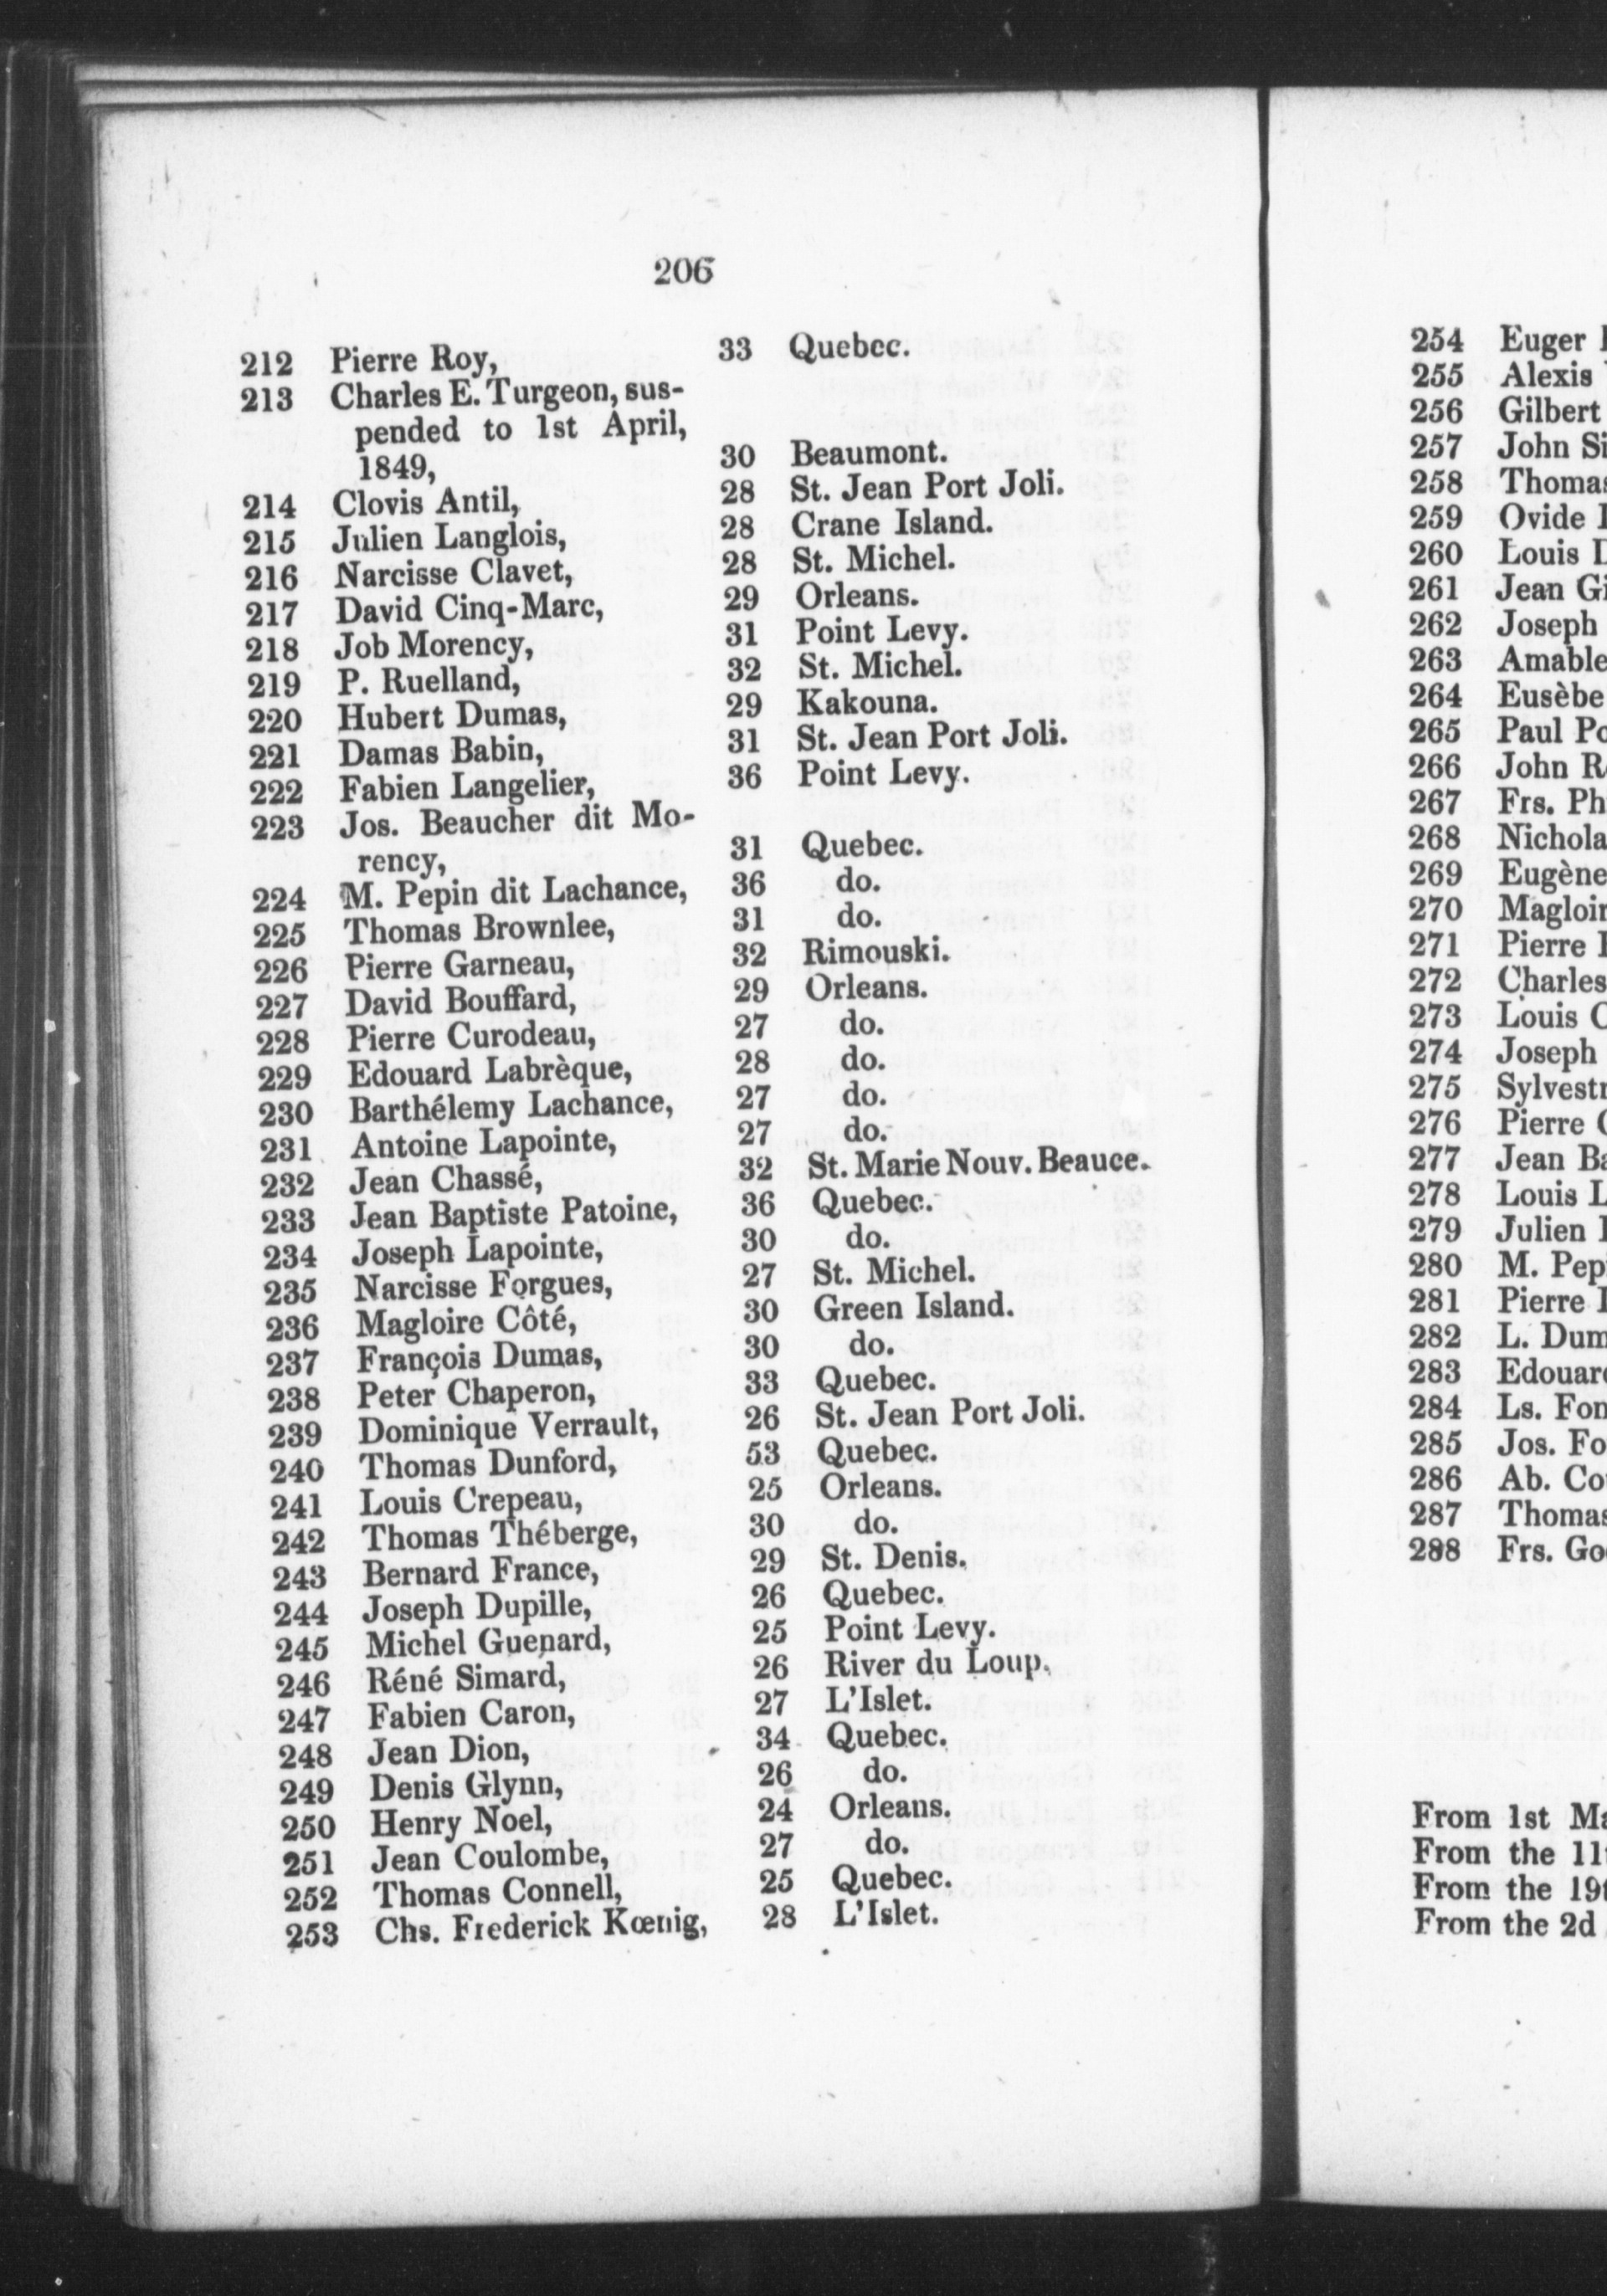 206
212 Pierre Roy, 33 Quebec.
213 Charles E. Turgeon, sus-
pended to 1st April,
1849, 30 Beaumont.
214 Clovis Antil, 28 St. Jean Port Joli.
215 Julien Langlois, 28 Crane Island.
216 Narcisse Clavet, 28 St. Michel.
217 David Cinq-Marc, 29 Orleans.
218 Job Morency, 31 Point Levy.
219 P. Ruelland, 32 St. Michel.
220 Hubert Dumas, 29 Kakouna.
221 Damas Babin, 31 St. Jean Port Joli.
222 Fabien Langelier, 36 Point Levy.
223 Jos. Beaucher dit Mo-
rency, 31 Quebec.
224 M. Pepin dit Lachance, 36 do.
225 Thomas Brownlee, 31 do.
226 Pierre Garneau, 32 Rimouski.
227 David Bouffard, 29 Orleans.
228 Pierre Curodeau, 27 do.
229 Edouard Labrèque, 28 do.
230 Barthélemy Lachance, 27 do.
231 Antoine Lapointe, 27 do.
232 Jean Chassé, 32 St. Marie Nouv. Beauce.
233 Jean Baptiste Patoine, 36 Quebec.
234 Joseph Lapointe, 30 do.
235 Narcisse Forgues, 27 St. Michel.
236 Magloire Côté, 30 Green Island.
237 François Dumas, 30 do.
238 Peter Chaperon, 33 Quebec.
239 Dominique Verrault, 26 St. Jean Port Joli.
240 Thomas Dunford, 53 Quebec.
241 Louis Crepeau, 25 Orleans.
242 Thomas Théberge, 30 do.
243 Bernard France, 29 St. Denis.
244 Joseph Dupille, 26 Quebec.
245 Michel Guenard, 25 Point Levy.
246 Réné Simard, 26 River du Loup.
247 Fabien Caron, 27 L'Islet.
248 Jean Dion, 34 Quebec.
249 Denis Glynn, 26 do.
250 Henry Noel, 24 Orleans.
251 Jean Coulombe, 27 do.
252 Thomas Connell, 25 Quebec.
253 Chs. Frederick Kœnig, 28 L'Islet.
254 Euger
255 Alexis
256 Gilbert
257 John Si
258 Thomas
259 Ovide
260 Louis
261 Jean Gi
262 Joseph
263 Amable
264 Eusèbe
265 Paul Po
266 John R
267 Frs. Ph
268 Nichola
269 Eugène
270 Magloir
271 Pierre
272 Charles
273 Louis C
274 Joseph
275 Sylvestr
276 Pierre
277 Jean Ba
278 Louis L
279 Julien
280 M. Pepi
281 Pierre
282 L. Dum
283 Edouard
284 Ls. Fon
285 Jos. Fo
286 Ab. Co
287 Thomas
288 Frs. Go
From 1st Ma
From the 11t
From the 19t
From the 2d